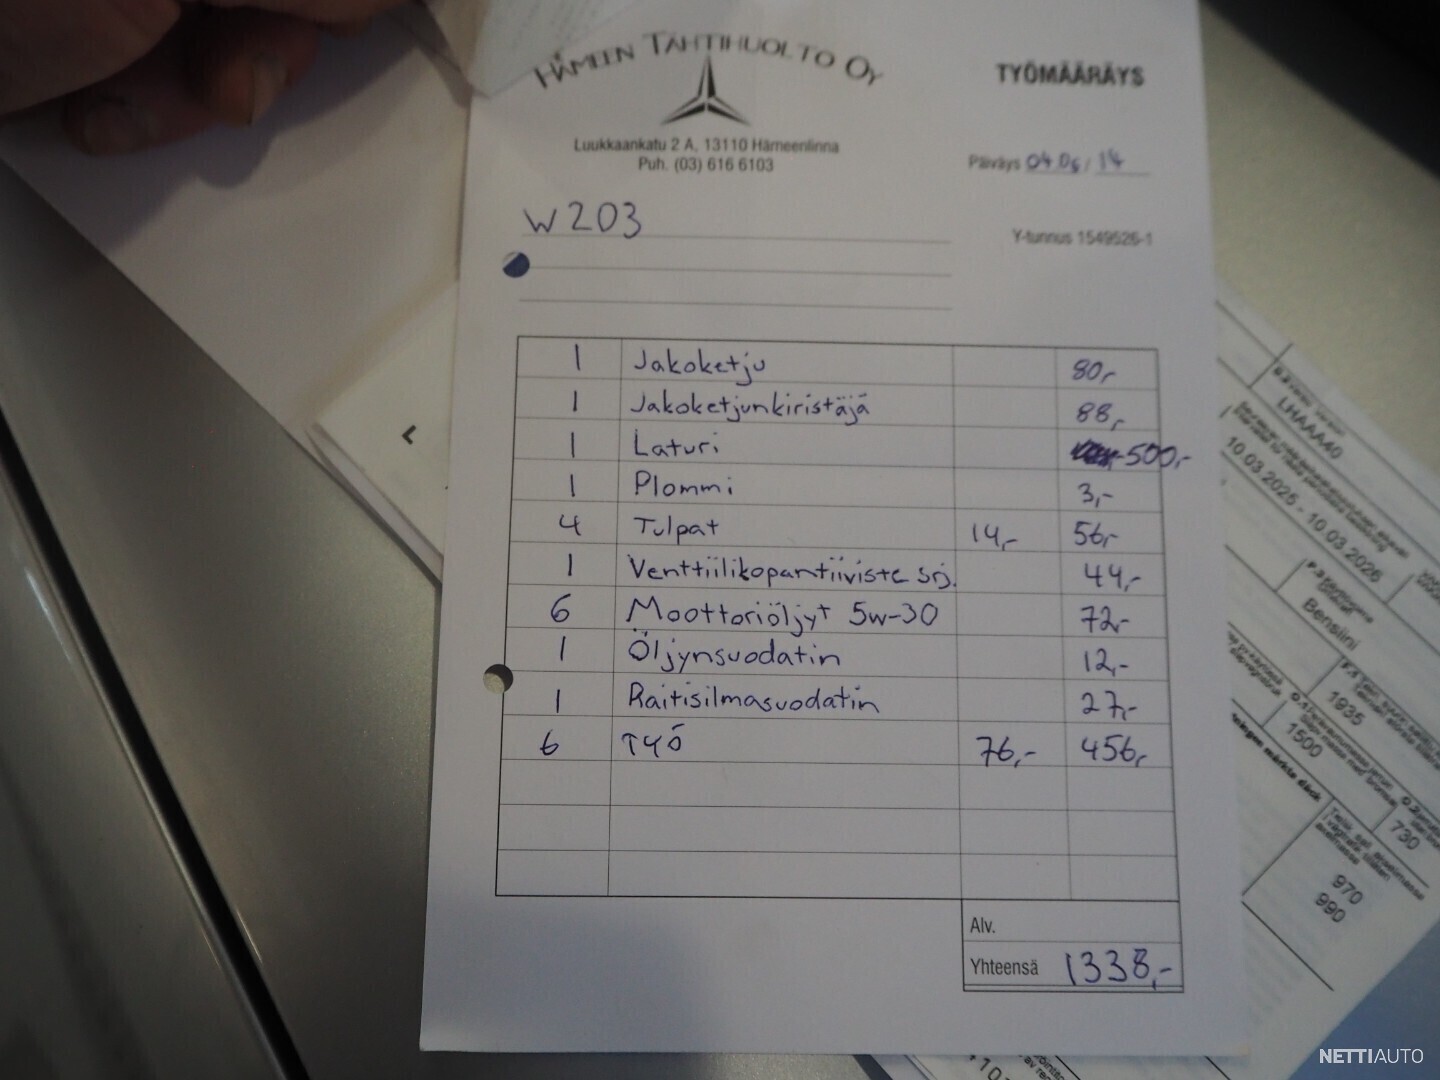 HÄMEEN TÄHTIHUOLTO OY
TYÖMÄÄRÄYS
Luukkaankatu 2 A, 13110 Hämeenlinna
Puh. (03) 616 6103
Päiväys 04.06 / 14
W203
Y-tunnus 1549526-1
1 Jakoketju 80,-
1 Jakoketjunkiristäjä 88,-
1 Laturi 500,-
1 Plommi 3,-
4 Tulpat 14,- 56,-
1 Venttiilikopantiiviste srj. 44,-
6 Moottoriöljyt 5w-30 72,-
1 Öljynsuodatin 12,-
1 Raitisilmasuodatin 27,-
6 TYÖ 76,- 456,-
Alv.
Yhteensä 1338,-
LHAAA40
10.03.2025 - 10.03.2026
Bensiini
1935
1500
730
970
990
NETTIAUTO